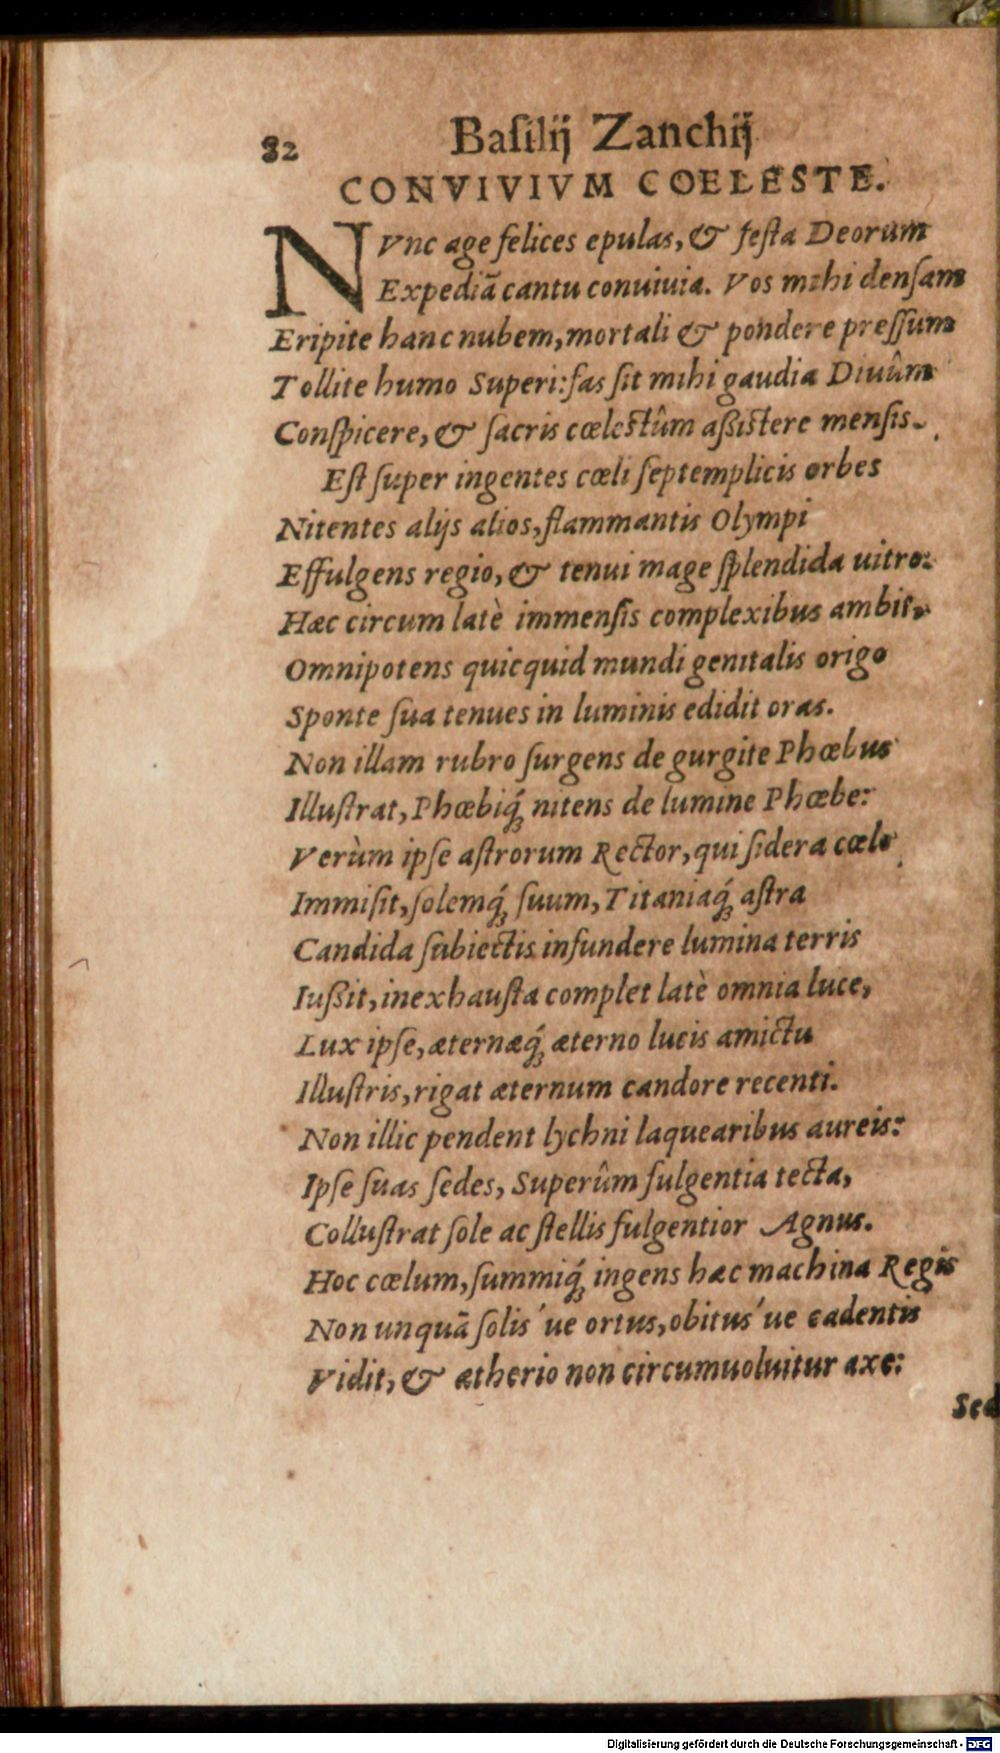 82 Baſilij Zanchij
CONVIVIVM COELESTE.
NVnc age felices epulas, & feſta Deorum
Expediā cantu conuiuia. Vos mihi denſam
Eripite hanc nubem, mortali & pondere preſſum
Tollite humo Superi: fas ſit mihi gaudia Diuûm
Conſpicere, & ſacris cœleſtûm aßiſtere menſis.
Eſt ſuper ingentes cœli ſeptemplicis orbes
Nitentes alijs alios, flammantis Olympi
Effulgens regio, & tenui mage ſplendida uitro:
Hæc circum latè immenſis complexibus ambit,
Omnipotens quicquid mundi genitalis origo
Sponte ſua tenues in luminis edidit oras.
Non illam rubro ſurgens de gurgite Phœbus
Illuſtrat, Phœbiq́ꝫ nitens de lumine Phœbe:
Verùm ipſe aſtrorum Rector, qui ſidera cœlo
Immiſit, ſolemq́ꝫ ſuum, Titaniaq́ꝫ aſtra
Candida ſubiectis infundere lumina terris
Iußit, inexhauſta complet latè omnia luce,
Lux ipſe, æternæq́ꝫ æterno lucis amictu
Illuſtris, rigat æternum candore recenti.
Non illic pendent lychni laquearibus aureis:
Ipſe ſuas ſedes, Superûm fulgentia tecta,
Colluſtrat ſole ac ſtellis fulgentior Agnus.
Hoc cœlum, ſummiq́ꝫ ingens hæc machina Regis
Non unquā ſolis´ue ortus, obitus´ue cadentis
Vidit, & ætherio non circumuoluitur axe:
Sed
Digitalisierung gefördert durch die Deutsche Forschungsgemeinschaft - DFG